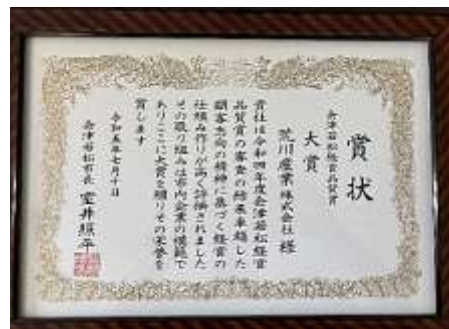 賞状
会津若松経営品質賞
大賞
荒川産業株式会社 様
貴社は令和四年度会津若松経営
品質賞の審査の結果卓越した
顧客志向の精神に基づく経営の
仕組み作りが高く評価されました
その取り組みは市内企業の模範で
ありここに大賞を贈りその栄誉を
賞します
令和五年七月十日
会津若松市長 室井照平